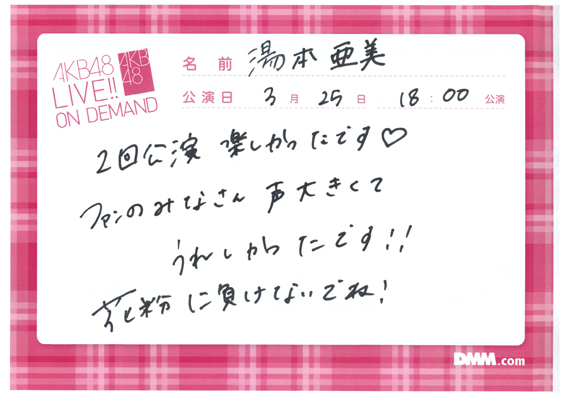 AKB48
LIVE!!
ON DEMAND
AKB
48
名前 湯本亜美
公演日 3月25日 18:00公演
2回公演 楽しかったです♡
ファンのみなさん 声大きくて
うれしかったです!!
花粉に負けないでね!
DMM.com